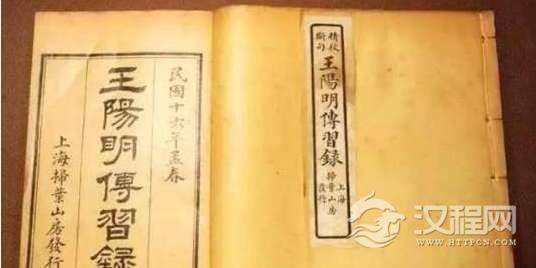 精校
斷句
王陽明傳習録
上海
掃葉山房
發行
民國十六年孟春
王陽明傳習錄
上海掃葉山房發行
汉程网
HTTPCN.COM